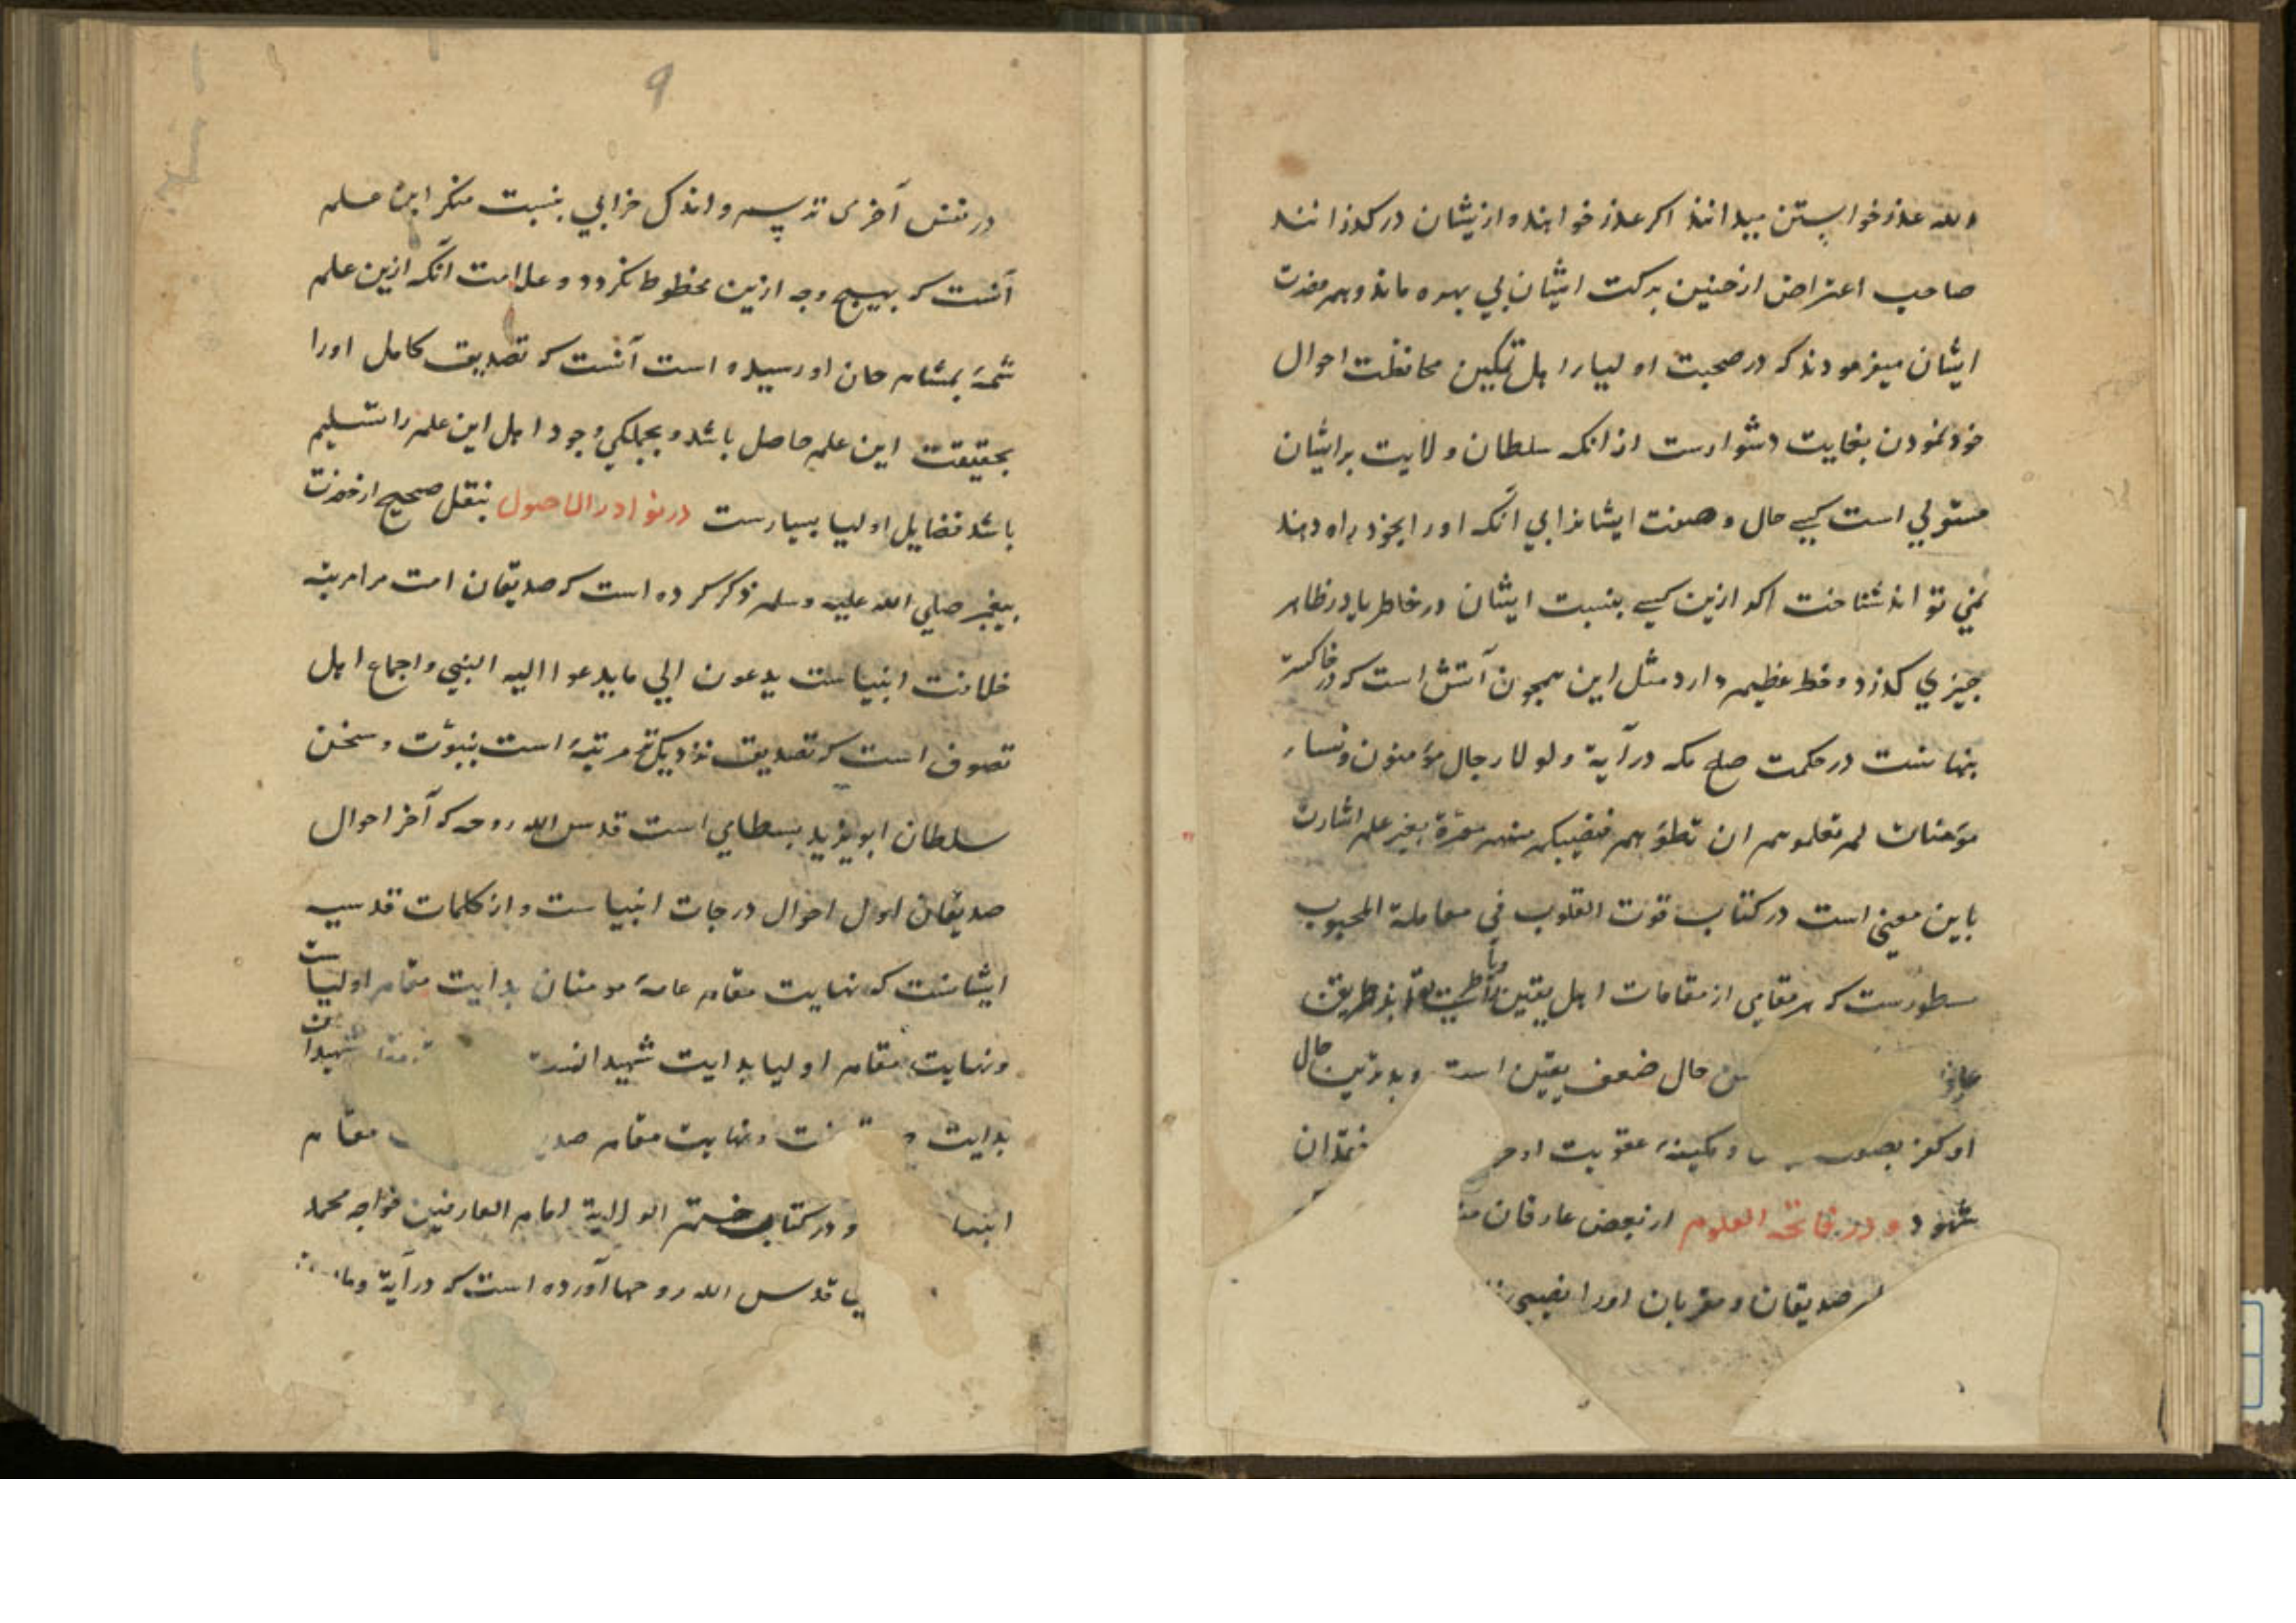 والله عذر خواستن میدانند اکر عذر خواهنده ازیشان درکذرانند
صاحب اعتراض از جنین برکت ایشان بی بهره ماند وهم حضرت
ایشان میفرمودند که در صحبت اولیا را اهل تمکین محافظت احوال
خود نمودن بغایت دشوارست از انکه سلطان ولایت بر ایشان
مستولی است کسی حال وصفت ایشانرا بی آنکه اورا بخود راه دهند
نمی تواند شناخت اکر ازین کسی بنسبت ایشان در خاطر یا در ظاهر
جیزی کذرد وخط عظیم دارد مثل این همجون آتش است که در خاکستر
بنهانست در حکمت صلح مکه در آیة ولولا رجال مؤمنون ونساء
مؤمنات لم تعلموهم ان تطؤهم فتصیبکم منهم معرة بغیر علم اشارت
باین معنی است در کتاب قوت القلوب فی معاملة المحبوب
مسطورست که هر مقامی از مقامات اهل یقین طریق
حال ضعف یقین است وبدترین حال
او کفر وکمینهٔ عقوبت او فقدان
شود ودر فاتحة العلوم از بعض عارفان
صدیقان ومقربان اورا نصیبی
۹
در نفس آخری ترسم واندک خرابی بنسبت منکر این علم
آنست که بهیج وجه ازین محظوظ نکردد وعلامت آنکه ازین علم
شمهٔ بمشام جان او رسیده است آنست که تصدیق کامل اورا
بحقیقت این علم حاصل باشد وبجملکی وجود اهل این علم را تسلیم
باشد فضایل اولیا بسیارست در نوادر الاصول بنقل صحیح از حضرت
بیغمبر صلی الله علیه وسلم ذکر کرده است که صدیقان امت مرا مرتبه
خلافت انبیاست یدعون الی ما یدعوا الیه النبی واجماع اهل
تصوف است که تصدیق نزدیکتر مرتبهٔ است بنبوّت وسخن
سلطان ابو یزید بسطامی است قدس الله روحه که آخر احوال
صدیقان اول احوال درجات انبیاست واز کلمات قدسیه
ایشانست که نهایت مقام عامهٔ مومنان بدایت مقام اولیاست
ونهایت مقام اولیا بدایت شهیدانست مقام شهیدان
بدایت ونهایت مقام مقام
انبیا ودر کتاب ختم الولایة امام العارفین خواجه محمد
قدس الله روحها آورده است که در آیة وما